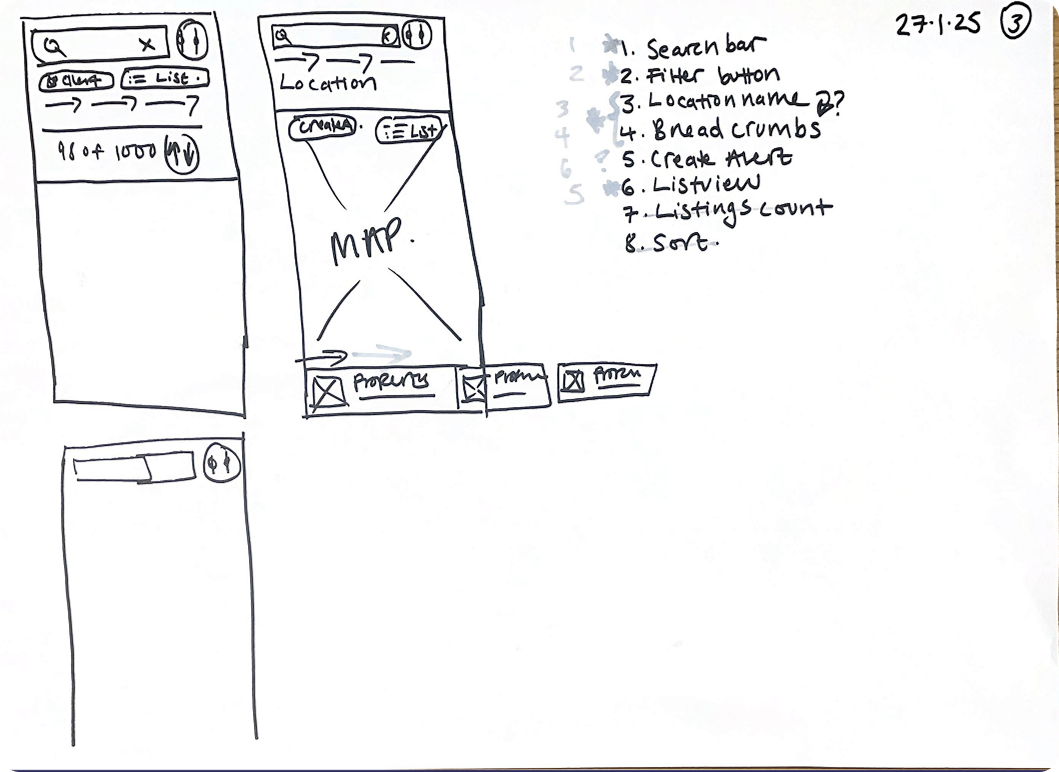 27.1.25 3
x
Alert
List.
98 of 1000
Location
Create A.
List
MAP.
PROPERTIES
1 * 1. Search bar
2 * 2. Filter button
3 3. Location name ?
4 * 4. Bread crumbs
6 ? 5. Create Alert
5 * 6. Listview
7. Listings count
8. Sort.